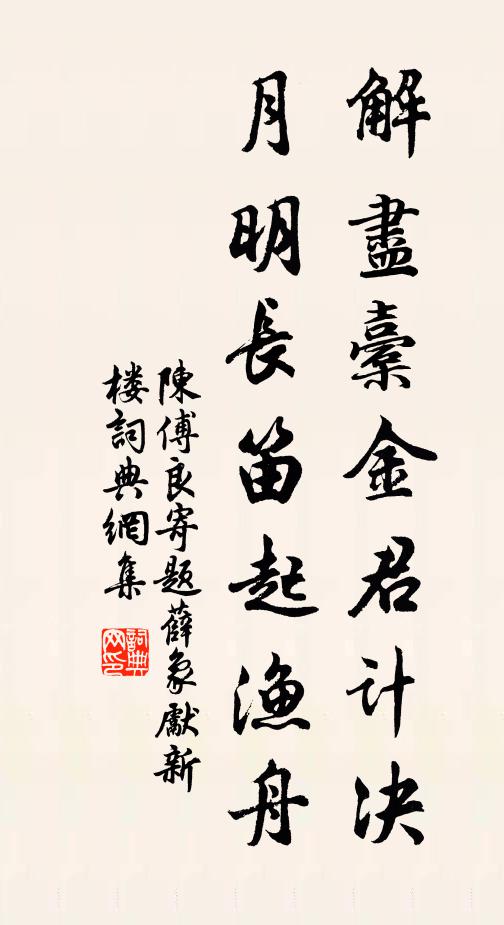 解盡橐金君计决
月明長笛起漁舟
陳傅良寄題薛象獻新
楼詞典網集
詞典
网印